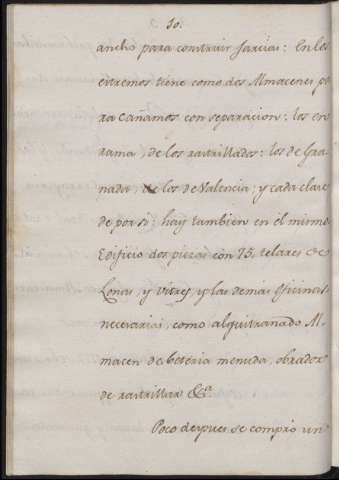 10.
ancho para construir Jarcias: En los
extremos tiene como dos Almacenes pa
ra Cañamos con separacion: los en
rama, de los rastrillados: los de Gra
nada, de los de Valencia; y cada clase
de por si; hay tambien en el mismo
Edificio dos piezas con 75, telares de
Lonas, y Vitres, y las demas Oficinas
necesarias, como alquitranado Al-
macen de beteria menuda, obrador
de rastrillar &a.
Poco despues se compró un